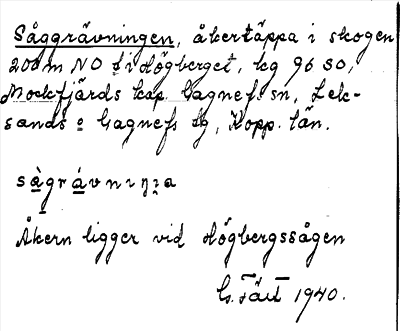 Såggrävningen, åkertäppa i skogen
200 m NO i Högberget, kg 96 SO,
Mockfjärds kap. Gagnefs sn, Lek-
sands o Gagnefs tg, Kopp. län.
Åkern ligger vid Högbergssågen
G. Täll 1940.